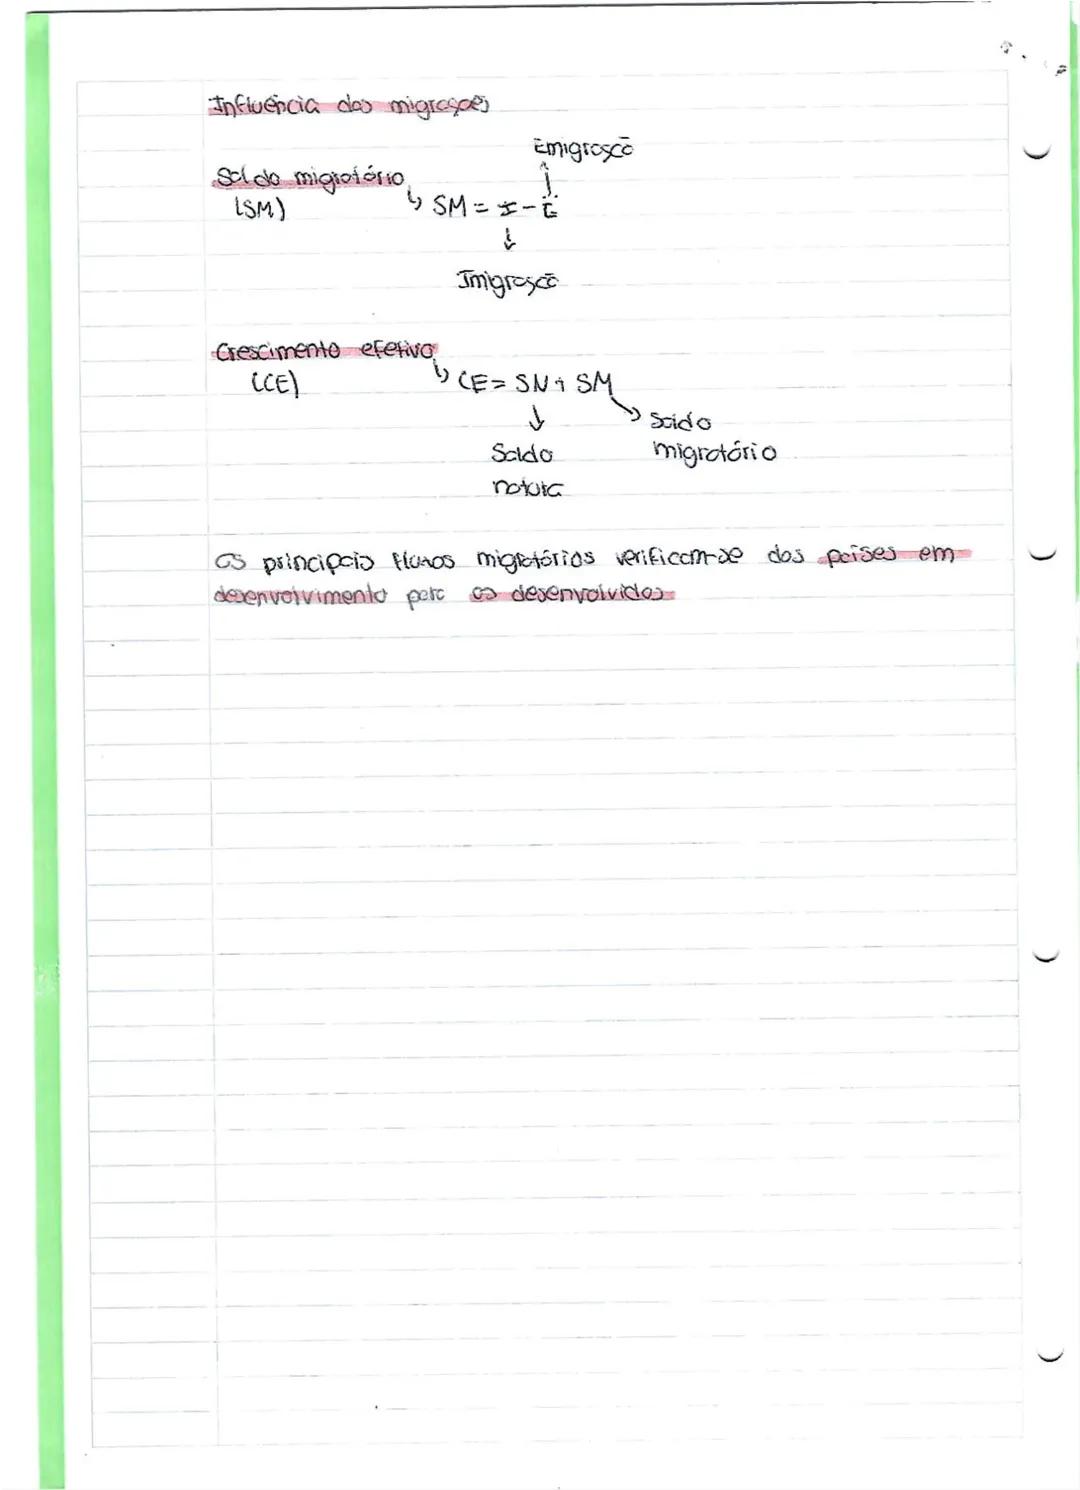 Influência das migrações
Emigração
Saldo migratório
(SM)
↳ SM = I - E
Imigração
Crescimento efetivo
(CE)
↳ CE = SN + SM
Saldo
natural
Saldo
migratório
Os principais fluxos migratórios verificam-se dos países em
desenvolvimento para os desenvolvidos